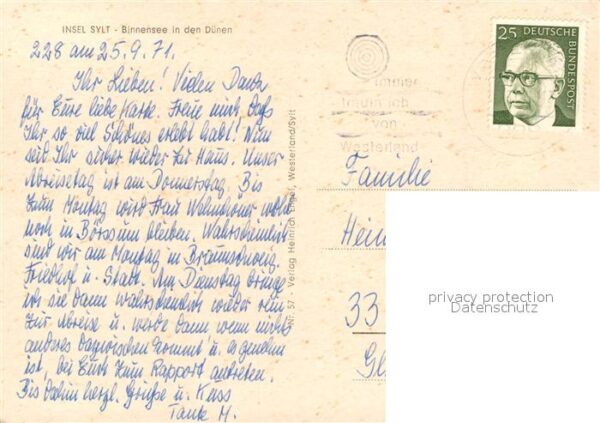 INSEL SYLT - Binnensee in den Dünen
228 am 25.9.71.
Ihr Lieben! Vielen Dank
für Eure liebe Karte. Freue mich, daß
Ihr so viel Schönes erlebt habt! Nun
seid Ihr sicher wieder zu Haus. Unser
Abreisetag ist am Donnerstag. Bis
zum Montag wird Frau wohl
noch in Börssum bleiben. Wahrscheinlich
sind wir am Montag in Braunschweig.
Friedhof u. Stadt. Am Dienstag bringe
ich sie dann wahrscheinlich wieder rein
zur Abreise u. werde dann wenn nichts
anderes dazwischen kommt u. es genehm
ist, bei Euch zum Rapport antreten.
Bis dahin herzl. Grüße u. Kuss
Tante M.
Nr. 57 Verlag Heinrich Engel, Westerland/Sylt
immer
traum ich
von
Westerland
25 DEUTSCHE BUNDESPOST
Familie
Hein
33
privacy protection
Datenschutz